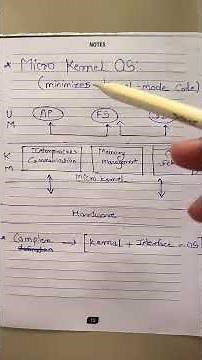 NOTES
* Micro Kernel OS:
(minimizes kernel-mode code)
U
M
AP
FS
K
M
Interprocess
Communication
Memory
Managment
micro kernel
Hardware
* Complex → [Kernel + Interface = OS]